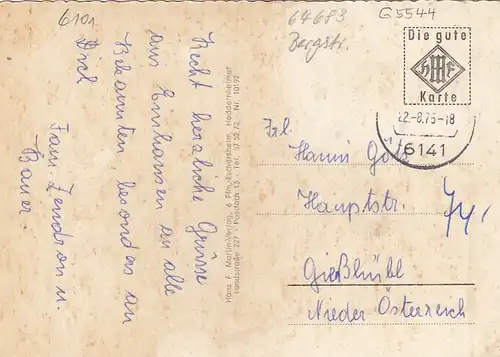 6101
64683
G5544
Bergstr.
Die gute
HMF
Karte
22.-8.75-18
6141
Recht herzliche Grüsse
aus Einhausen an alle
Bekannten, besonders an
Dich
Fam. Zendron u.
Bauer
Hans F. Martin-Verlag, 6 Ffm.-Eschersheim, Heddernheimer
Landstraße 227 · Postfach 15 · Tel. 57 52 72, Nr. 10192
Frl.
Hanni Götz
Hauptstr.
Gießhübl
Nieder Österreich